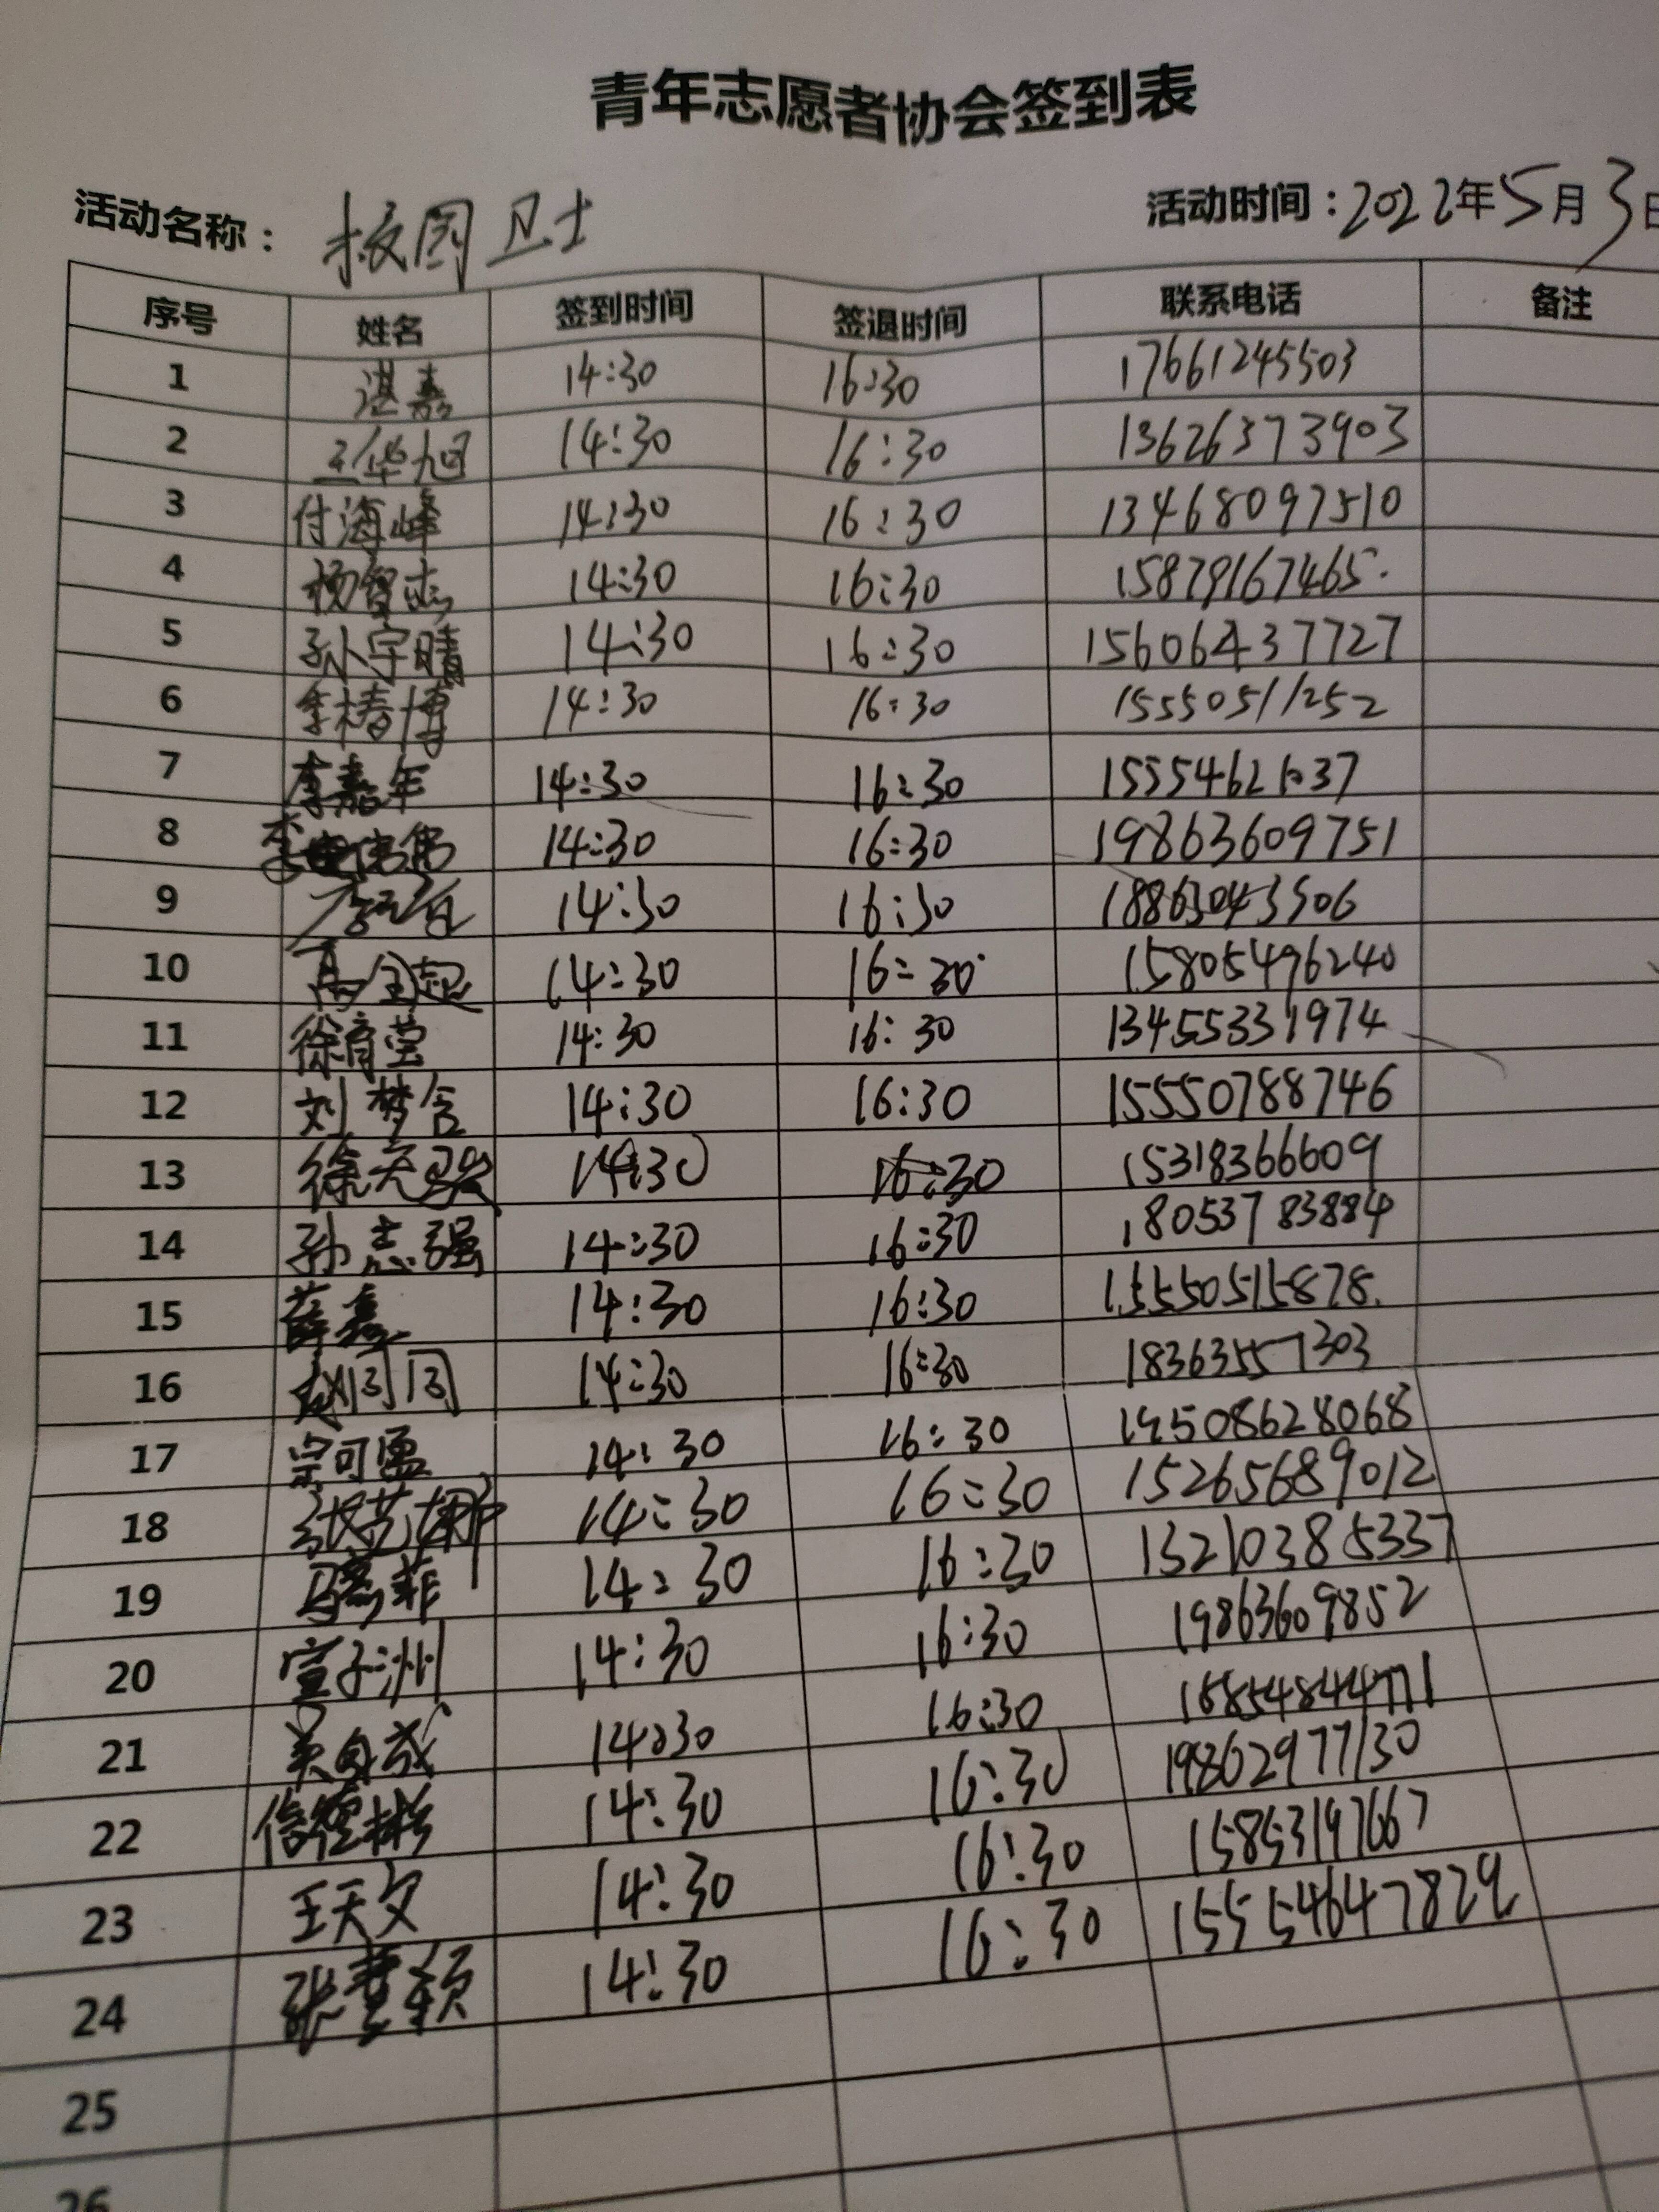 青年志愿者协会签到表
活动名称：校园卫士 活动时间：2022年5月3日
序号 姓名 签到时间 签退时间 联系电话 备注
1 湛嘉 14:30 16:30 17661245503
2 王华旭 14:30 16:30 13626373903
3 付海峰 14:30 16:30 13468097510
4 杨智志 14:30 16:30 15879167465
5 孙宇晴 14:30 16:30 15606437727
6 李椿博 14:30 16:30 15550511252
7 李嘉年 14:30 16:30
8 14:30 16:30 19863609751
9 14:30 16:30 18863043506
10 高全起 14:30 16:30 15805496240
11 徐育莹 14:30 16:30 13455331974
12 刘梦含 14:30 16:30 15550788746
13 14:30 16:30 15318366609
14 孙志强 14:30 16:30 18053783884
15 薛嘉 14:30 16:30 15550515878
16 赵同同 14:30 16:30 18363557303
17 宗可盈 14:30 16:30
18 张艺娜 14:30 16:30 15265689012
19 马嘉菲 14:30 16:30 13210385337
20 宣子洲 14:30 16:30 19863609852
21 14:30 16:30
22 14:30 16:30 19862977130
23 王天文 14:30 16:30 15853197667
24 14:30 16:30
25
26